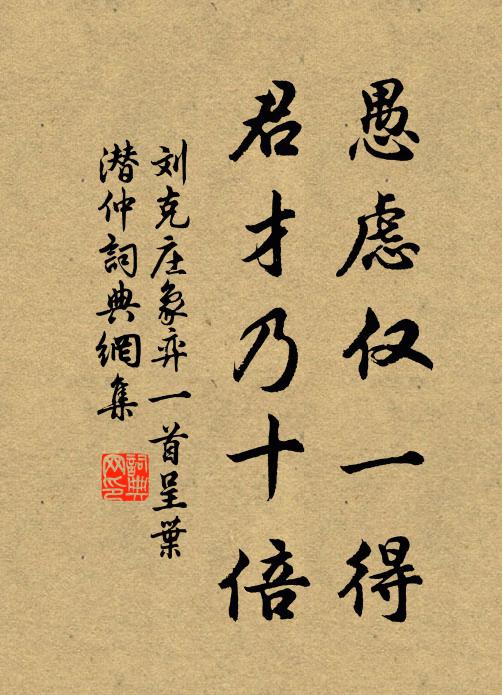 愚虑仅一得
君才乃十倍
刘克庄象弈一首呈葉
潜仲詞典網集
詞典网印